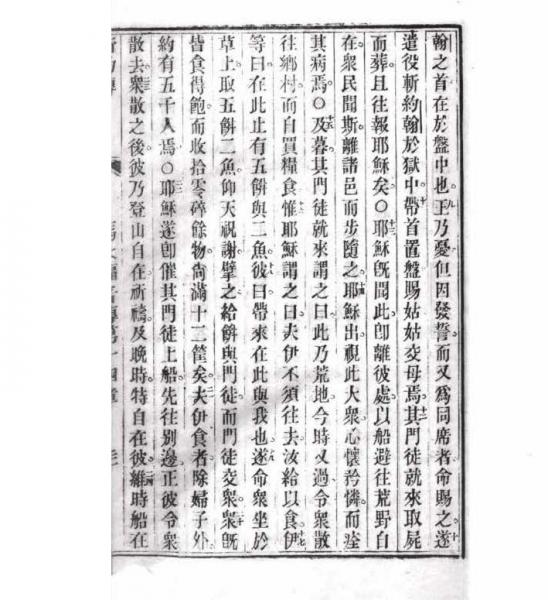 翰之首在於盤中也王乃憂但因發誓而又爲同席者命賜之遂
遣役斬約翰於獄中帶首置盤賜姑姑交母焉其門徒就來取屍
而葬且往報耶穌矣○耶穌旣聞此卽離彼處以船避往荒野自
在衆民聞斯離諸邑而步隨之耶穌出視此大衆心懷矜憐而痊
其病焉○及暮其門徒就來謂之曰此乃荒地今時又過令衆散
往鄉村而自買糧食惟耶穌謂之曰夫伊不須往去汝給以食伊
等曰在此止有五餅與二魚彼曰帶來在此與我也遂命衆坐於
草上取五餅二魚仰天祝謝擘之給餅與門徒而門徒交衆衆旣
皆食得飽而收拾零碎餘物尙滿十二筐矣夫伊食者除婦子外
約有五千人焉○耶穌遂卽催其門徒上船先往別邊正彼令衆
散去衆散之後彼乃登山自在祈禱及晚時特自在彼維時船在